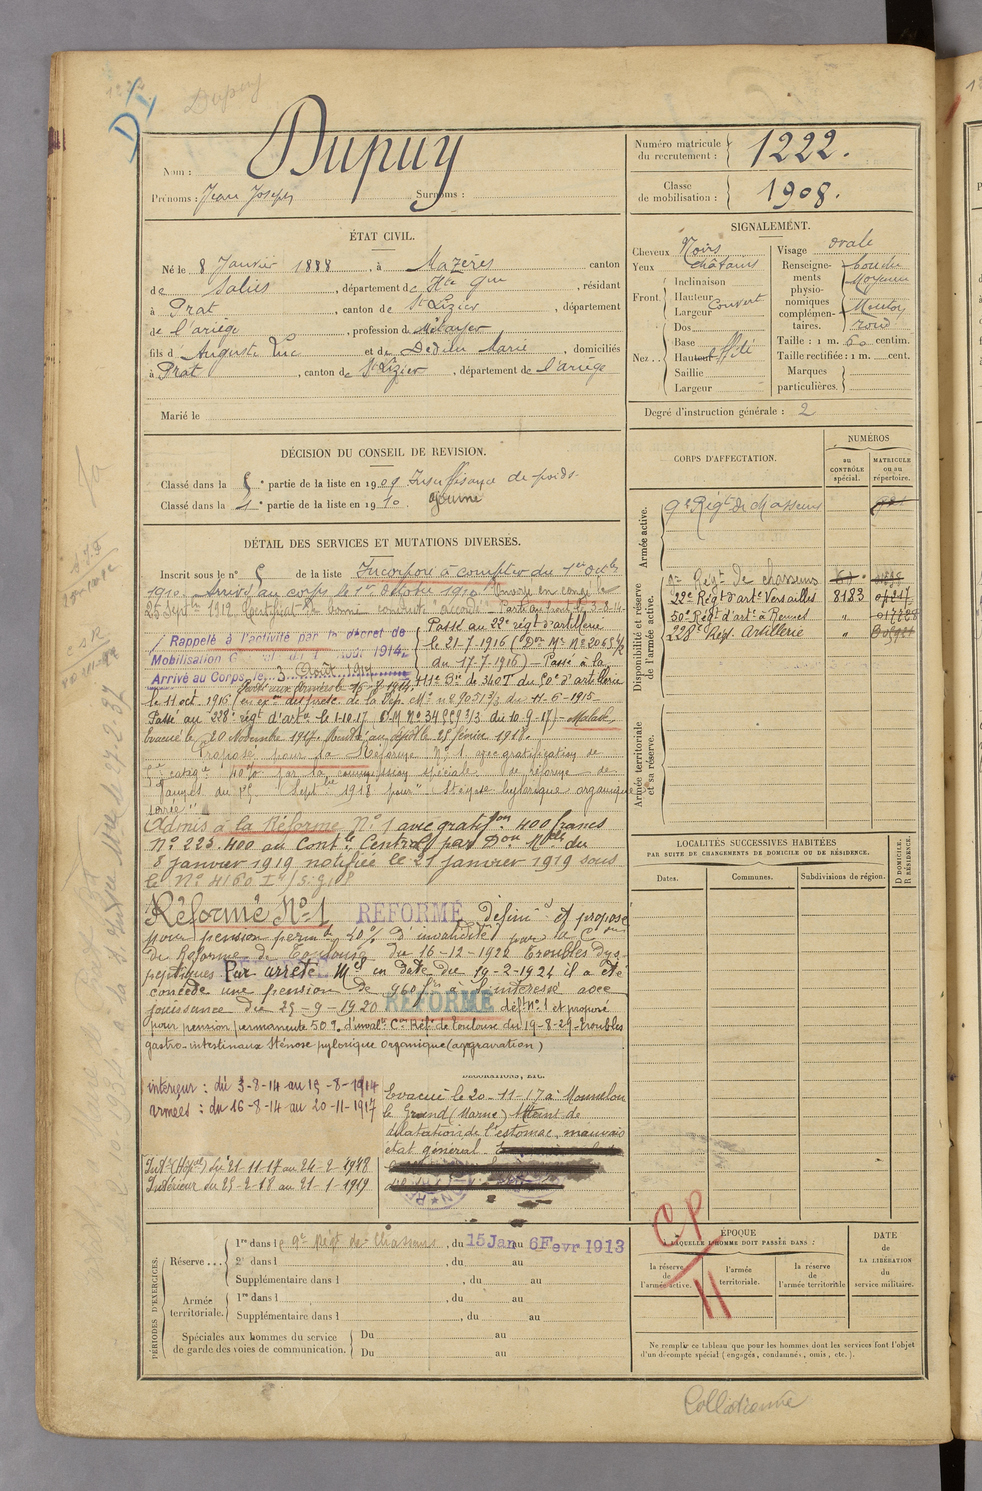 Dupuy
D1
Nom : Dupuy
Prénoms : Jean Joseph Surnoms :
Numéro matricule du recrutement : 1222.
Classe de mobilisation : 1908.
ÉTAT CIVIL.
Né le 8 Janvier 1888, à Mazères canton
de Salies, département de Hte Gne, résidant
à Prat, canton de St Lizier, département
de l'ariège, profession de Métayer
fils d'Auguste Luc et de Dedieu Marie, domiciliés
à Prat, canton de St Lizier, département de l'ariège
Marié le
SIGNALEMENT.
Cheveux Noirs
Yeux châtains
Front. Inclinaison
Hauteur
Largeur Couvert
Nez.. Dos
Base
Hauteur effilé
Saillie
Largeur
Visage ovale
Renseignements physionomiques complémentaires. bouche
moyenne
Menton
rond
Taille : 1 m. 60 centim.
Taille rectifiée : 1 m. cent.
Marques particulières.
Degré d'instruction générale : 2
DÉCISION DU CONSEIL DE REVISION.
Classé dans la 5e partie de la liste en 1909 Insuffisance de poids
Classé dans la 1e partie de la liste en 1910. ajourné
CORPS D'AFFECTATION.
NUMÉROS
au CONTRÔLE spécial.
MATRICULE ou au répertoire.
Armée active.
9e Régt de Chasseurs
Disponibilité et réserve de l'armée active.
9e Regt de chasseurs
22e Régt d'arte Versailles 8183
50e Régt d'arte à Rennes "
228e Régt Artillerie "
Armée territoriale et sa réserve.
DÉTAIL DES SERVICES ET MUTATIONS DIVERSES.
Inscrit sous le n° 5 de la liste Incorporé à compter du 1er Octobre
1910. Arrivé au corps le 1er Octobre 1910. Envoyé en congé le
25 Septbre 1912. Certificat de bonne conduite accordé. Parti au front le 3-8-14
Rappelé à l'activité par le décret de
Mobilisation Août 1914.
Arrivé au Corps le 3 Août 1914
Passé au 22e régt d'artillerie
le 21-7-1916 (Don Mle No 20659
du 17-7-1916) - Passé à la
Passé aux armées le 16-8-1914.
le 11 oct. 1916 (en exon du préset de la Dép. Mlle n° 89051 2/3 du 11-6-1915.
Passé au 228e régt d'arte le 1.10.17 D.M No 34959 2/3 du 10-9-17) - Malade,
Evacué le 20 Novembre 1917. Rentré au dépôt le 25 février 1918.
Proposé pour la Réforme No 1 avec gratification de
5e catége 40% par la commission spéciale de réforme de
Admis à la Réforme No 1 avec gratifon 400 francs
No 223.400 au Contle Central par Don Mlle du
8 janvier 1919 notifiée le 21 janvier 1919 sous
le No 4160
Réformé No 1 RÉFORMÉ définif et proposé
pour pension permte 20% d'invalidité par la Con
de Réforme de Toulouse du 16-12-1922 Troubles dys-
peptiques Par arrêté Mel en date du 19-2-1924 il a été
concédé une pension de 960 frs à l'intéressé avec
jouissance du 25-9-1920 RÉFORMÉ défif No 1 et proposé
pour pension permanente 50 % d'invalté Con Réfe de Toulouse du 19-8-29 Troubles
gastro-intestinaux Sténose pylorique Organique (aggravation)
intérieur : du 3-8-14 au 15-8-1914
armées : du 16-8-14 au 20-11-1917
Intr (Hôpal) du 21-11-17 au 24-2-1918
Intérieur du 25-2-18 au 21-1-1919
DÉCORATIONS, ETC.
Evacué le 20-11-17 à Mourmelon
le Grand (Marne) Atteint de
dilatation de l'estomac, mauvais
état général.
LOCALITÉS SUCCESSIVES HABITÉES
PAR SUITE DE CHANGEMENTS DE DOMICILE OU DE RÉSIDENCE.
Dates. Communes. Subdivisions de région.
D DOMICILE. R RÉSIDENCE.
PÉRIODES D'EXERCICES.
Réserve... 1re dans l e 9e Régt de Chasseurs, du 15 Jan au 6 Fevr 1913
2e dans l , du au
Supplémentaire dans l , du au
Armée territoriale. 1re dans l , du au
Supplémentaire dans l , du au
Spéciales aux hommes du service de garde des voies de communication. Du au
Du au
CP
11
ÉPOQUE
À LAQUELLE L'HOMME DOIT PASSER DANS :
la réserve de l'armée active.
l'armée territoriale.
la réserve de l'armée territoriale
DATE de LA LIBÉRATION du service militaire.
Ne remplir ce tableau que pour les hommes dont les services font l'objet
d'un décompte spécial (engagés, condamnés, omis, etc.).
Collationné